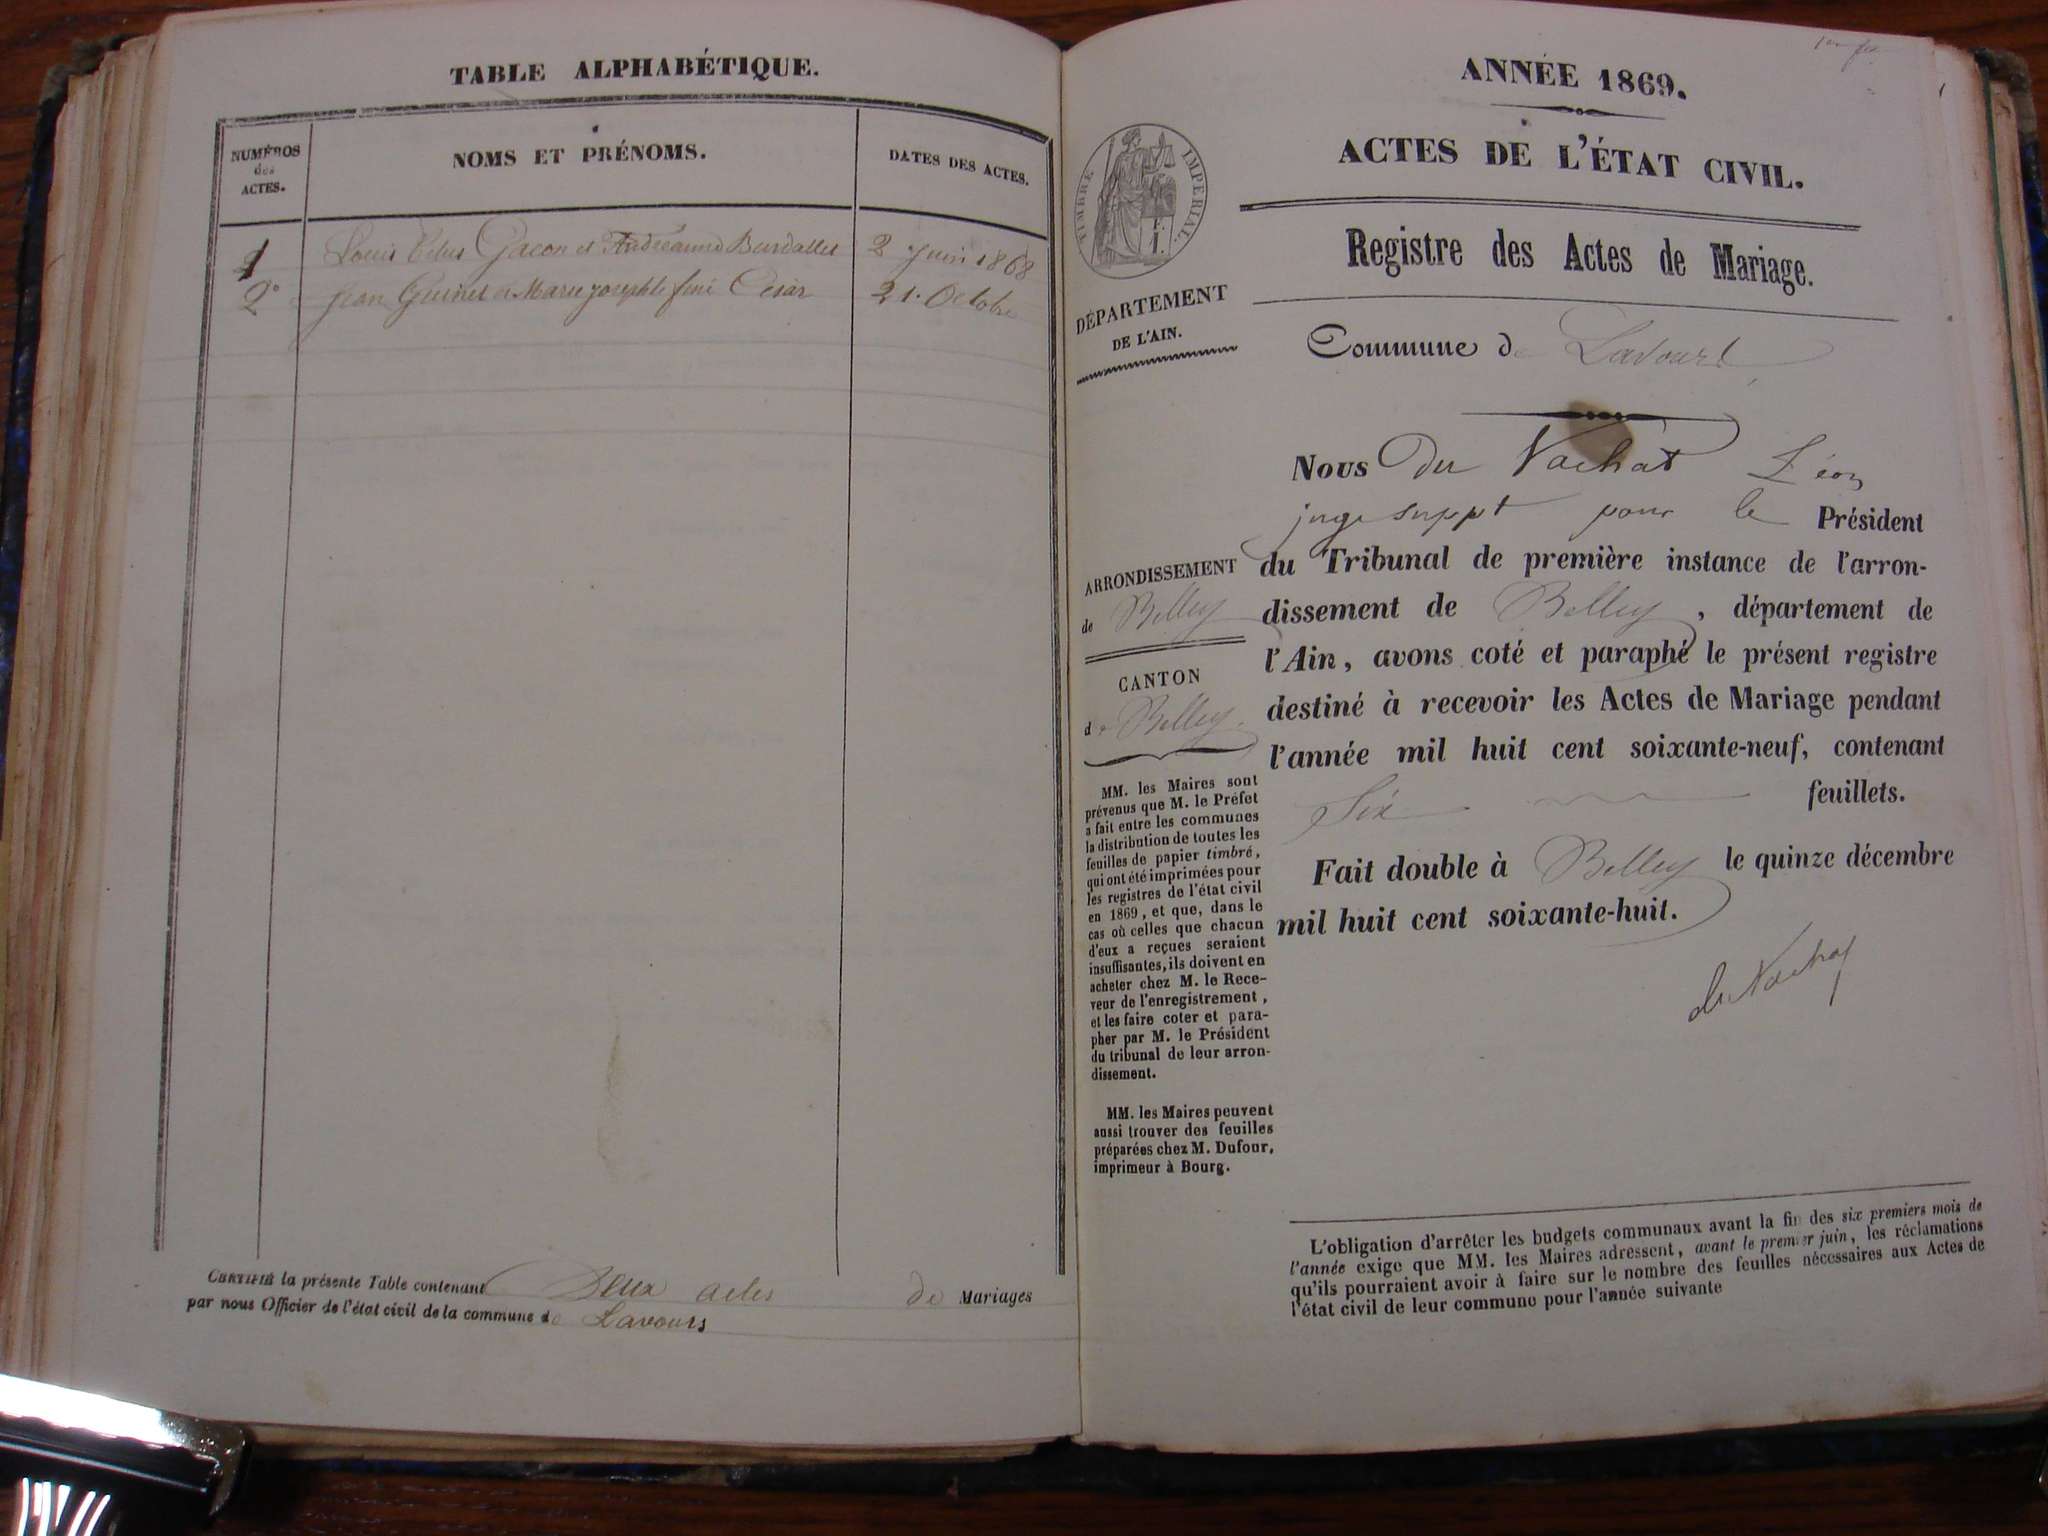 TABLE ALPHABÉTIQUE.
NUMÉROS
des
ACTES.
NOMS ET PRÉNOMS.
DATES DES ACTES.
1 Louis Gacon et Andréanne Burdallet 2 Juin 1868
2° Jean Guinet et Marie Josephte César 21. Octobre
CERTIFIÉ la présente Table contenant Deux actes de Mariages
par nous Officier de l'état civil de la commune de Lavours
ANNÉE 1869.
ACTES DE L'ÉTAT CIVIL.
TIMBRE IMPÉRIAL.
Registre des Actes de Mariage.
DÉPARTEMENT
DE L'AIN.
Commune de Lavours
ARRONDISSEMENT
de Belley
CANTON
de Belley
MM. les Maires sont
prévenus que M. le Préfet
a fait entre les communes
la distribution de toutes les
feuilles de papier timbré,
qui ont été imprimées pour
les registres de l'état civil
en 1869, et que, dans le
cas où celles que chacun
d'eux a reçues seraient
insuffisantes, ils doivent en
acheter chez M. le Rece-
veur de l'enregistrement,
et les faire coter et para-
pher par M. le Président
du tribunal de leur arron-
dissement.
MM. les Maires peuvent
aussi trouver des feuilles
préparées chez M. Dufour,
imprimeur à Bourg.
Nous Du Vachat Léon
juge suppt pour le Président
du Tribunal de première instance de l'arron-
dissement de Belley, département de
l'Ain, avons coté et paraphé le présent registre
destiné à recevoir les Actes de Mariage pendant
l'année mil huit cent soixante-neuf, contenant
Six feuillets.
Fait double à Belley le quinze décembre
mil huit cent soixante-huit.
du Vachat
L'obligation d'arrêter les budgets communaux avant la fin des six premiers mois de
l'année exige que MM. les Maires adressent, avant le premier juin, les réclamations
qu'ils pourraient avoir à faire sur le nombre des feuilles nécessaires aux Actes de
l'état civil de leur commune pour l'année suivante